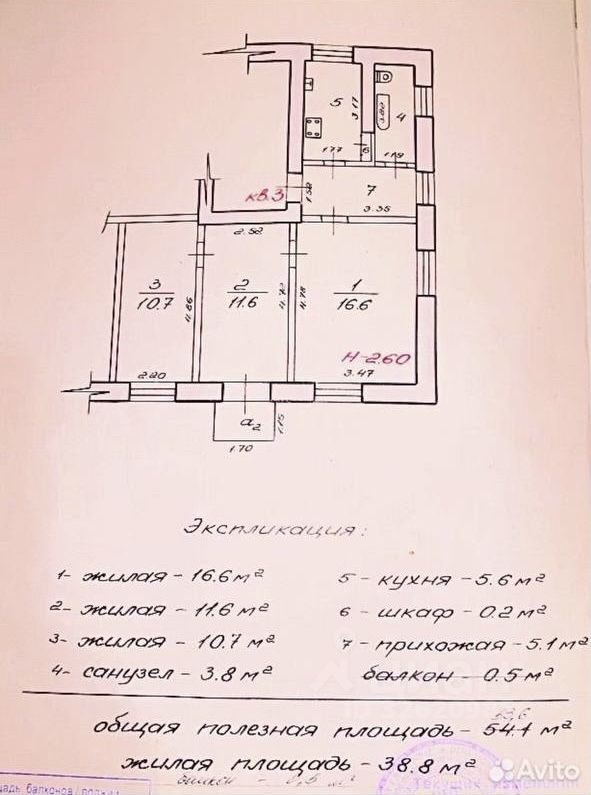 5
3.17
3.20
4
1.77
6
1.19
кв.3
1.52
7
3.35
2.52
3
10.7
4.86
2
11.6
4.79
4.78
1
16.6
H-2.60
2.20
3.47
a₂
1.15
1.70
Экспликация:
1- жилая - 16.6 м²
5 - кухня - 5.6 м²
2- жилая - 11.6 м²
6 - шкаф - 0.2 м²
3- жилая - 10.7 м²
7 - прихожая - 5.1 м²
4- санузел - 3.8 м²
балкон - 0.5 м²
53,6
общая полезная площадь - 54.1 м²
жилая площадь - 38.8 м²
балкон - 0,5 м²
Текущие изменения
Avito